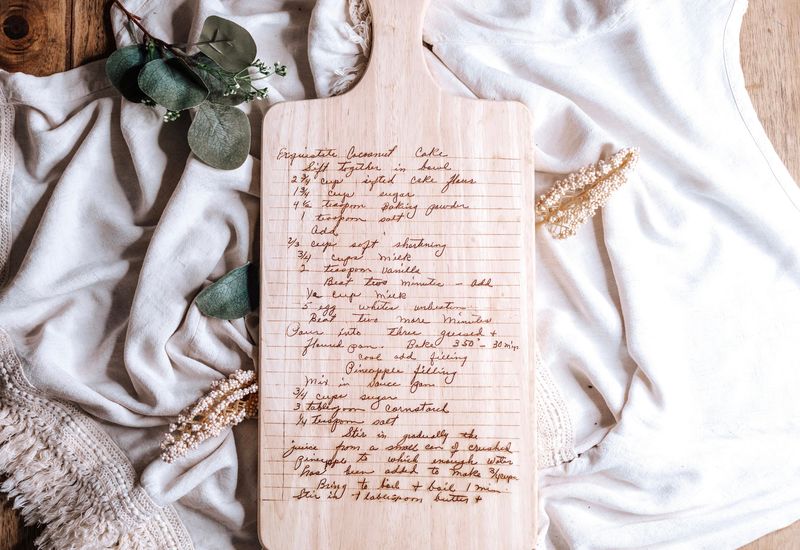 Exquistete Cocoanut Cake
Sift together in bowl
2 3/4 cup sifted cake flour
1 3/4 cup sugar
4 1/2 teaspoon Baking powder
1 teaspoon salt
Add
2/3 cup soft shortning
3/4 cups milk
2 teaspoon Vanilla
Beat two minutes - add
1/2 cup milk
5 egg whites unbeaten
Beat two more minutes
Pour into three greased +
floured pan. Bake 350° - 30 min
cool add filling
Pineapple filling
Mix in sauce pan
3/4 cups sugar
3 tablespoon cornstarch
1/4 teaspoon salt
Stir in gradually the
juice from a small can of crushed
pineapple to which enough water
has been added to make 3/4 cups
Bring to boil + boil 1 min.
Stir in 1 tablespoon butter +